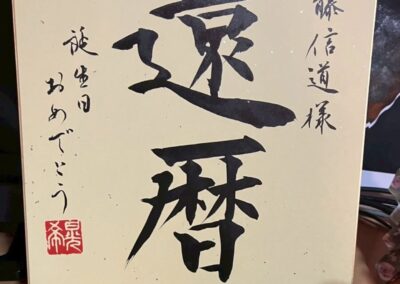 藤信道様
還暦
誕生日
おめでとう